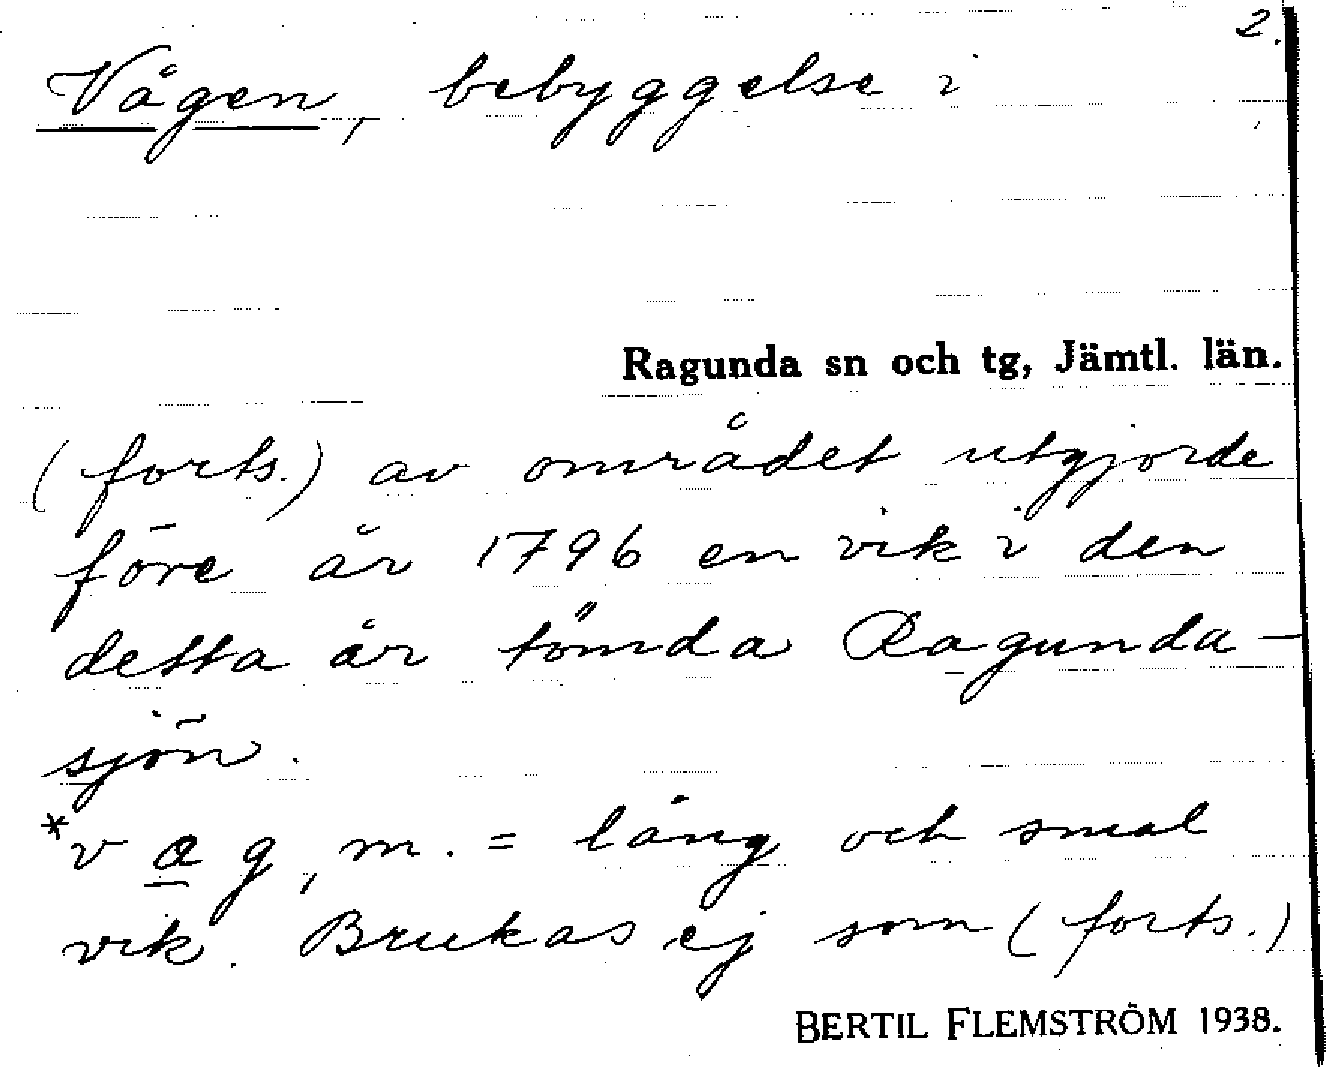 2.
Vågen, bebyggelse i
Ragunda sn och tg, Jämtl. län.
(forts.) av området utgjorde
före år 1796 en vik i den
detta år tömda Ragunda-
sjön.
*v a g, m. = lång och smal
vik. Brukas ej som (forts.)
BERTIL FLEMSTRÖM 1938.